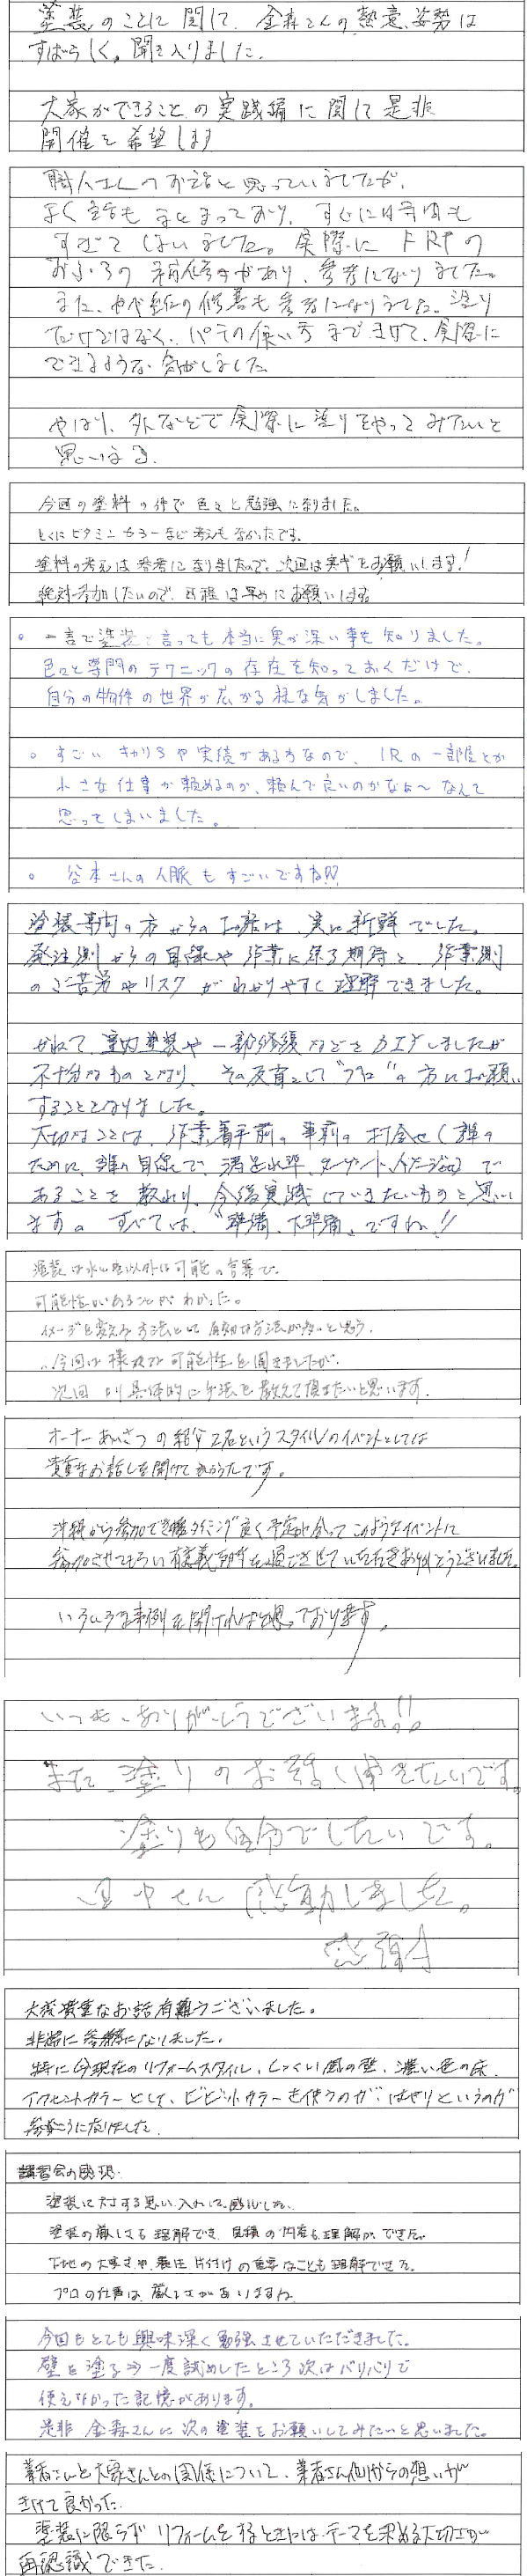 塗装のことに関して、金森さんの熱意、姿勢は
すばらしく。聞き入りました。
大家ができることの実践編に関して是非
開催を希望します
職人さんのお話と思っていましたが、
よく話もまとまっており、すぐに時間も
すぎてしまいました。実際にFRPの
おふろの補修等があり、参考になりました。
また、の修善も参考になりました。塗り
だけではなく、パテの使い方まできけて、実際に
できるような気がしました
やはり、外などで実際に塗りをやってみたいと
思いまる。
今回の塗料の件で色々と勉強になりました。
とくにビタミンカラーなど考えもなかったです。
塗料の考えは参考になりましたので、次回は実学をお願いします!
絶対参加したいので、日程は早めにお願いします
○ 一言で塗装と言っても本当に奥が深い事を知りました。
色々と専門のテクニックの存在を知っておくだけで、
自分の物件の世界が広がる様な気がしました。
○ すごいキャリアや実績がある方なので、1Rの一部屋とか
小さな仕事が頼めるのか、頼んで良いのかなぁ〜なんて
思ってしまいました。
○ 谷本さんの人脈もすごいですね!!
塗装専門の方からのお話は、実に新鮮でした。
発注側からの目線や作業に係る期待と、作業側
のご苦労やリスクがわかりやすく理解できました。
かねて、室内塗装や一部修復などをDIYしましたが
不十分なものとなり、その反省として"プロ"の方にお願い
することとなりました。
大切なことは、作業着手前の事前の打合せ(誰の
ために、誰の目線で、満足水準、ターゲット、イメージetc)で
あることを教わり、今後実践していきたいものと思い
ます。すべては、"準備、下準備"ですね!!
塗装は水と空以外は可能の言葉で、
可能性があることがわかった。
イメージを変える方法として有効な方法が多いと思う。
今回は様々な可能性を聞きましたが、
次回より具体的に手法を教えて頂きたいと思います。
オーナーあいさつの紹介2名というスタイルのイベントとしては
貴重なお話しを聞けてよかったです。
沖縄から参加でき、タイミング良く予定が合ってこのようなイベントに
参加させてもらい有意義な時を過ごさせていただきありがとうございました。
いろいろな事例を聞ければと思っております。
いつも、ありがとうございます!!
また、塗りのお話しききたいです。
塗りも自分でしたいです。
田中さん感動しました。
感謝
大変貴重なお話有難うございました。
非常に参考になりました。
特に今現在のリフォームスタイル、しっくい風の壁、濃い色の床、
アクセントカラーとして、ビビットカラーを使うのが、はやりというのが
参考になりました。
講習会の感想
塗装に対する思い入れに感心した。
塗装の厳しさも理解でき、見積の内容も理解ができた。
下地の大事さや、養生、片付けの重要なことも理解できた。
プロの仕事は、厳しさがありますね
今回もとても興味深く勉強させていただきました。
壁を塗る⇒一度試めしたところ次はバリバリで
使えなかった記憶があります。
是非 金森さんに次の塗装をお願いしてみたいと思いました。
業者さんと大家さんとの関係について、業者さん側からの想いが
きけて良かった。
塗装に限らずリフォームをするときには、テーマを決める大切さが
再認識できた。